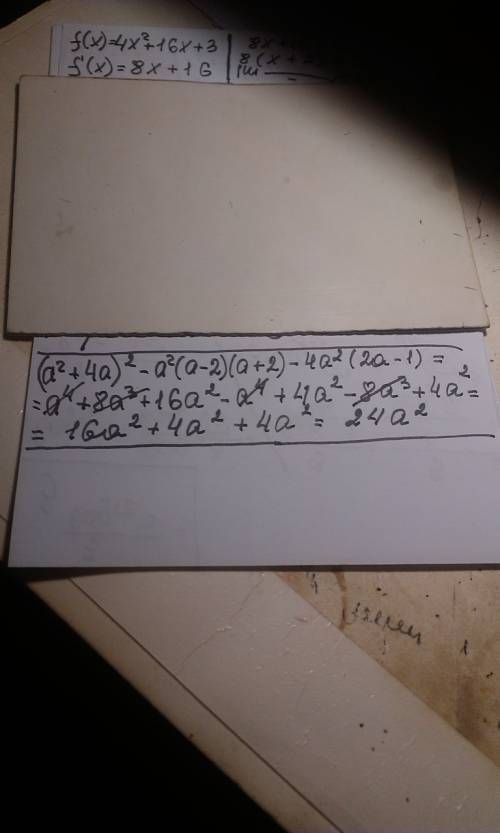 f(x)=4x²+16x+3
f'(x)=8x+16
8(x+
(a²+4a)²-a²(a-2)(a+2)-4a²(2a-1)=
=a⁴+8a³+16a²-a⁴+4a²-8a³+4a²=
=16a²+4a²+4a²=24a²